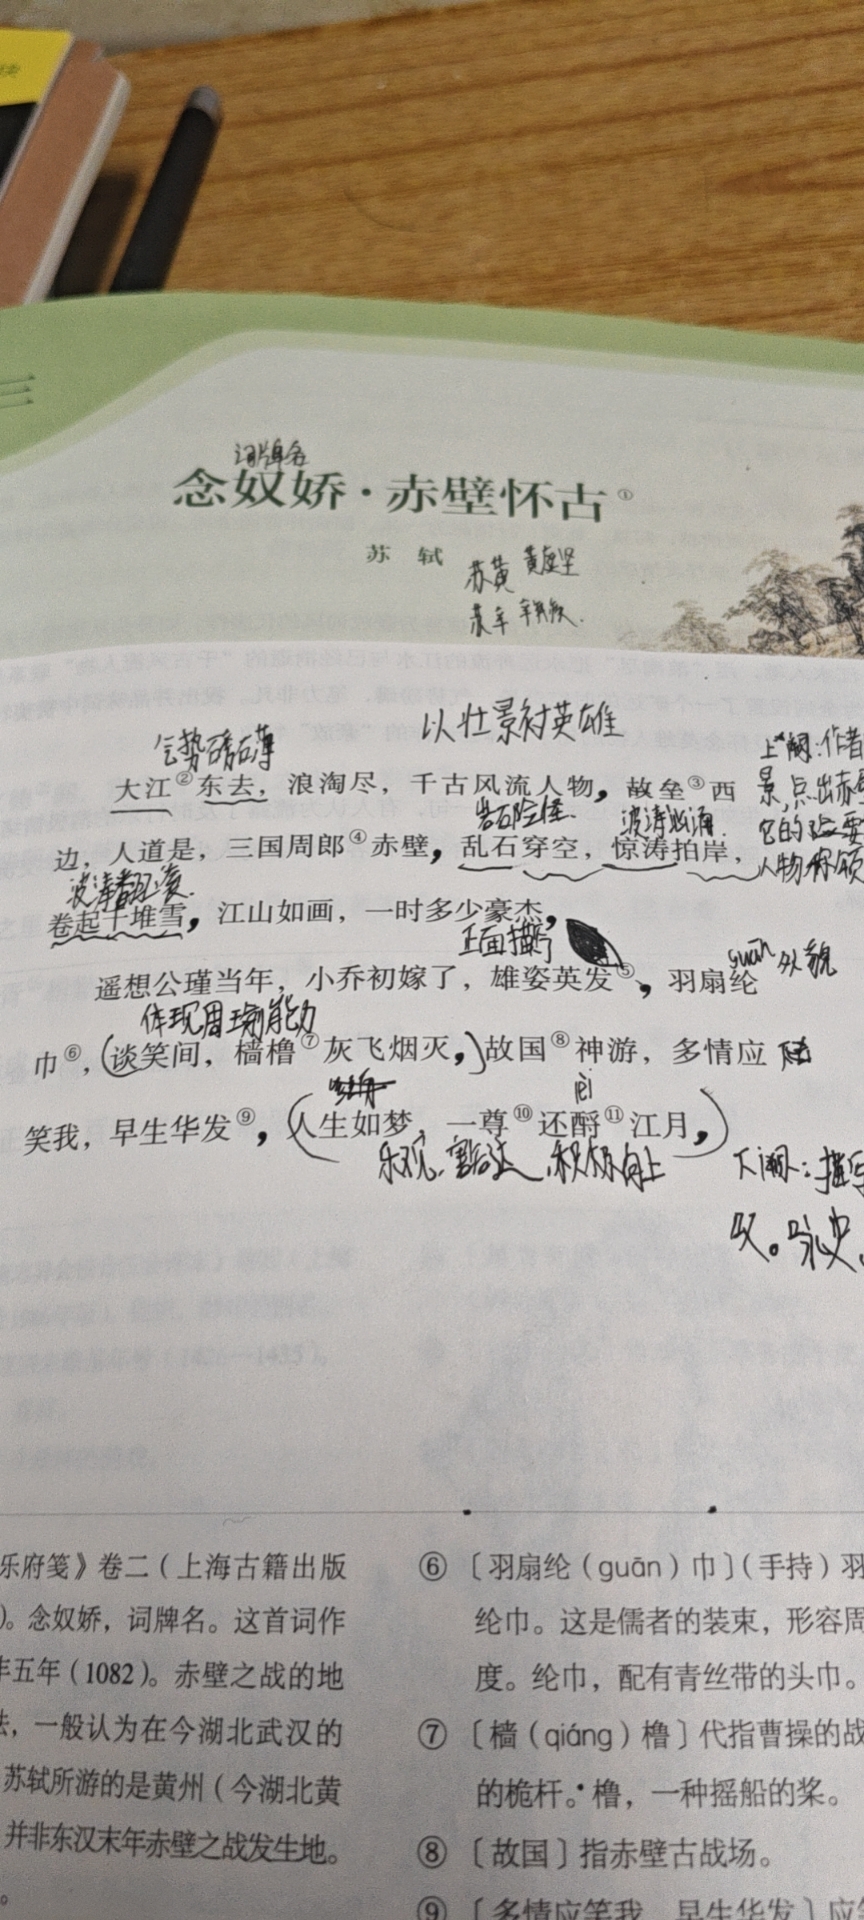 三
词牌名
念奴娇·赤壁怀古①
苏 轼
苏黄 黄庭坚
苏辛 辛弃疾.
气势磅礴
以壮景衬英雄
上阕:作者
大江②东去，浪淘尽，千古风流人物，故垒③西
景,点出赤壁
岩石险怪.
波涛汹涌.
它的险要
边，人道是，三国周郎④赤壁，乱石穿空，惊涛拍岸，
人物
波涛翻滚
卷起千堆雪，江山如画，一时多少豪杰，
正面描写
遥想公瑾当年，小乔初嫁了，雄姿英发⑤，羽扇纶
guān
外貌
体现周瑜的能力
巾⑥，(谈笑间，樯橹⑦灰飞烟灭，)故国⑧神游，多情应
笑我，早生华发⑨，(人生如梦，一尊⑩还酹⑪江月，)
乐观.豁达.积极向上
下阕:描写
叹。咏史.
乐府笺》卷二（上海古籍出版
)。念奴娇，词牌名。这首词作
年五年（1082）。赤壁之战的地
法，一般认为在今湖北武汉的
苏轼所游的是黄州（今湖北黄
并非东汉末年赤壁之战发生地。
。
⑥〔羽扇纶（guān）巾〕（手持）羽
纶巾。这是儒者的装束，形容周
度。纶巾，配有青丝带的头巾。
⑦〔樯（qiáng）橹〕代指曹操的战
的桅杆。橹，一种摇船的桨。
⑧〔故国〕指赤壁古战场。
⑨〔多情应笑我，早生华发〕应笑